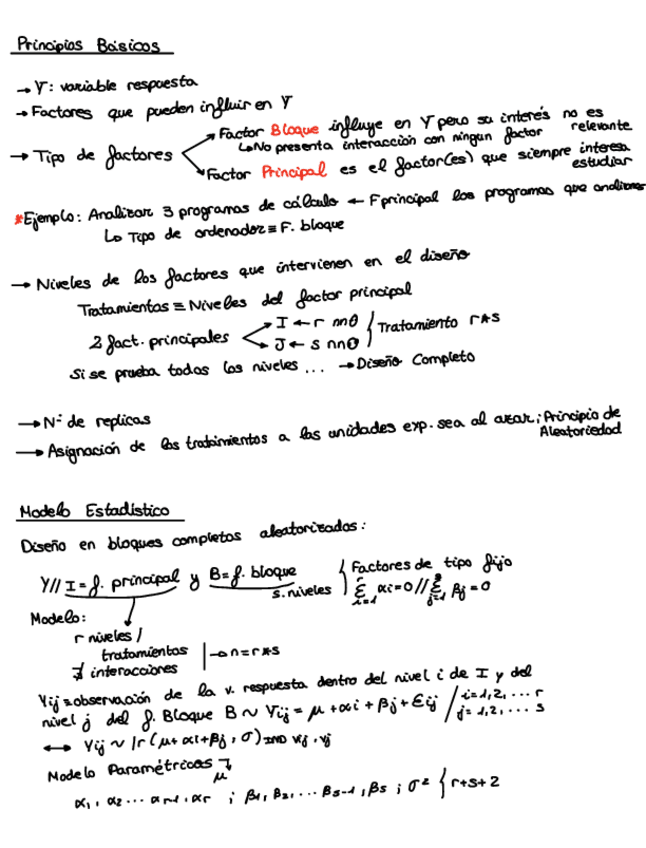 Principios Básicos
→ Y: variable respuesta
→ Factores que pueden influir en Y
→ Tipo de factores
Factor Bloque influye en Y pero su interés no es relevante
↳ No presenta interacción con ningun factor
Factor Principal es el factor(es) que siempre interesa estudiar
*Ejemplo: Analizar 3 programas de cálculo ← F principal los programas que
↳ Tipo de ordenador ≡ F. bloque
→ Niveles de los factores que intervienen en el diseño
Tratamientos ≡ Niveles del factor principal
2 fact. principales
I ← r
J ← s
Tratamiento r*s
Si se prueba todos los niveles ... → Diseño Completo
→ Nº de replicas
→ Asignación de los tratamientos a las unidades exp. sea al azar; Principio de Aleatoriedad
Modelo Estadístico
Diseño en bloques completos aleatorizados:
Y// I = f. principal y B = f. bloque
s. niveles
Factores de tipo fijo
Σ αi = 0 // Σ βj = 0
Modelo:
r niveles /
tratamientos
∄ interacciones
→ n = r*s
Yij = observación de la v. respuesta dentro del nivel i de I y del
nivel j del f. Bloque B ~ Yij = μ + αi + βj + Eij / i = 1, 2, ... r
j = 1, 2, ... s
↔ Yij ~ (μ + αi + βj, σ) IND
Modelo Paramétricos
μ
α1, α2 ... αr-1, αr ; β1, β2, ... βs-1, βs ; σ² } r+s+2